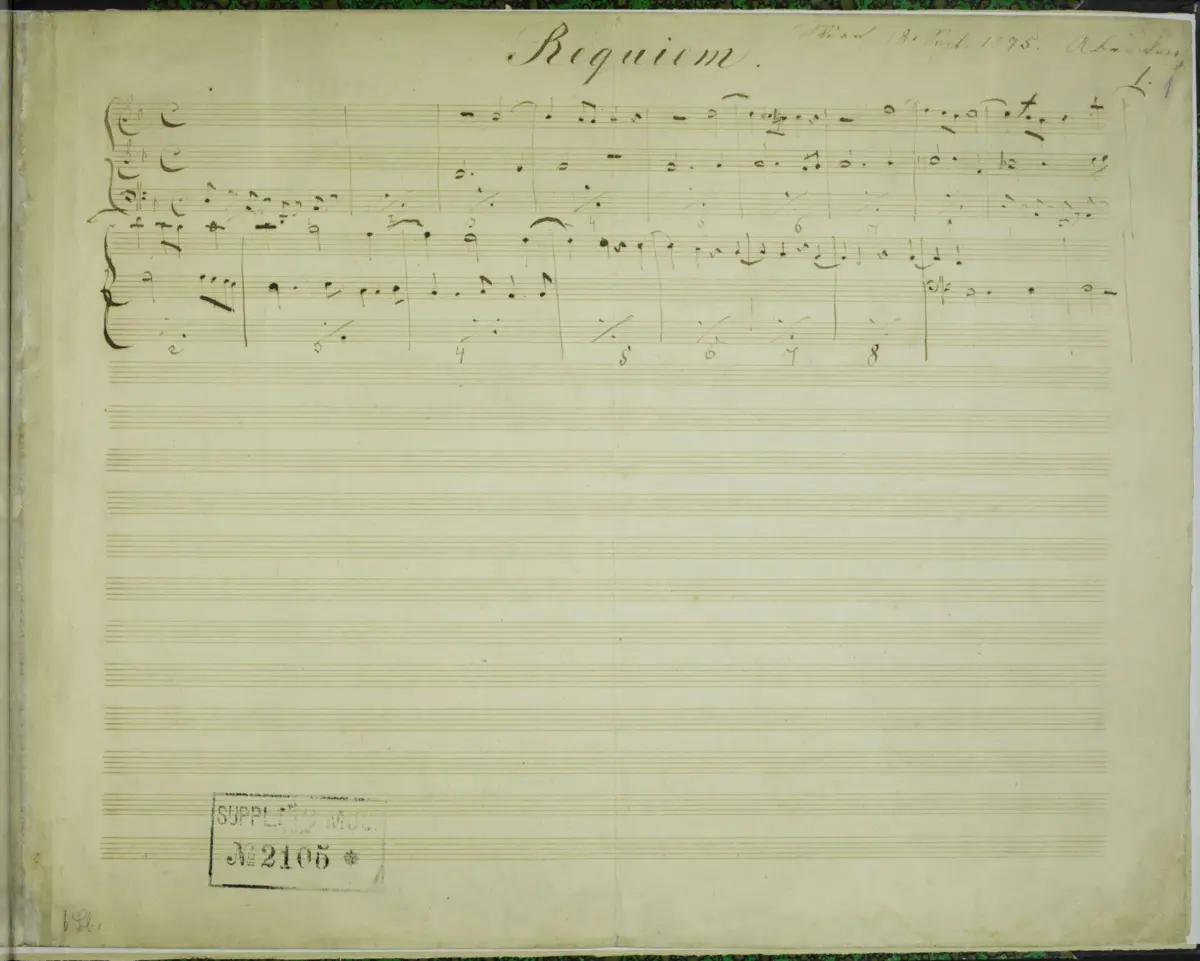 Requiem.
Wien 18. 1875.
1.
2 3 4 5 6 7 8
SUPPL. MUS.
№ 2105 *